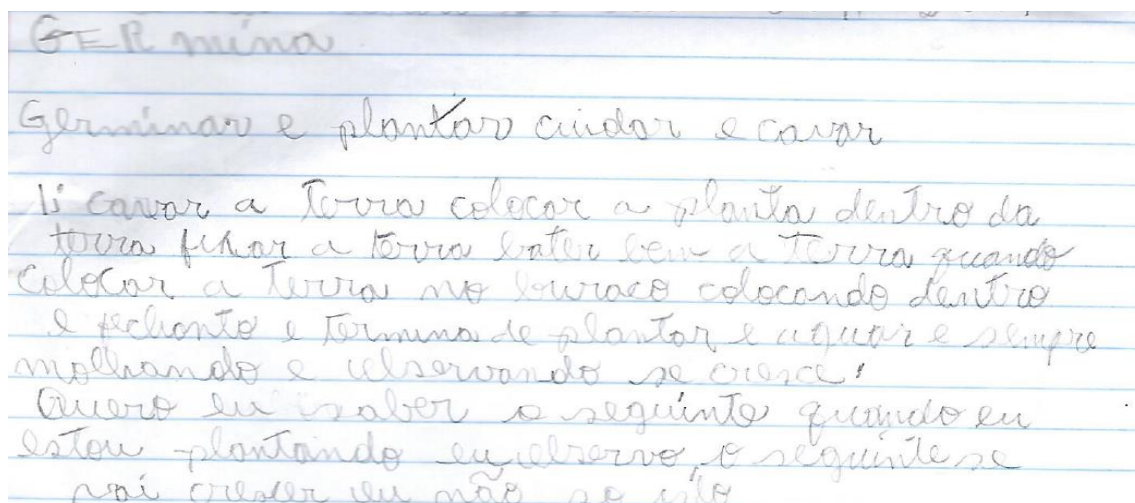 GERmina
Germinar e plantar cuidar e cavar
li cavar a terra colocar a planta dentro da
terra fixar a terra bater bem a terra quando
colocar a terra no buraco colocando dentro
e fechanto e termina de plantar e aguar e sempre
molhando e observando se cresce.
Quero eu saber o seguinte quando eu
estou plantando eu observo o seguinte se
vai crescer eu não so isto